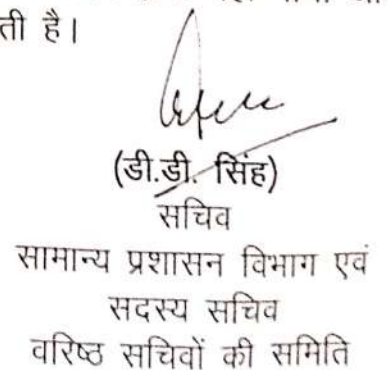 ती है।
(डी.डी. सिंह)
सचिव
सामान्य प्रशासन विभाग एवं
सदस्य सचिव
वरिष्ठ सचिवों की समिति